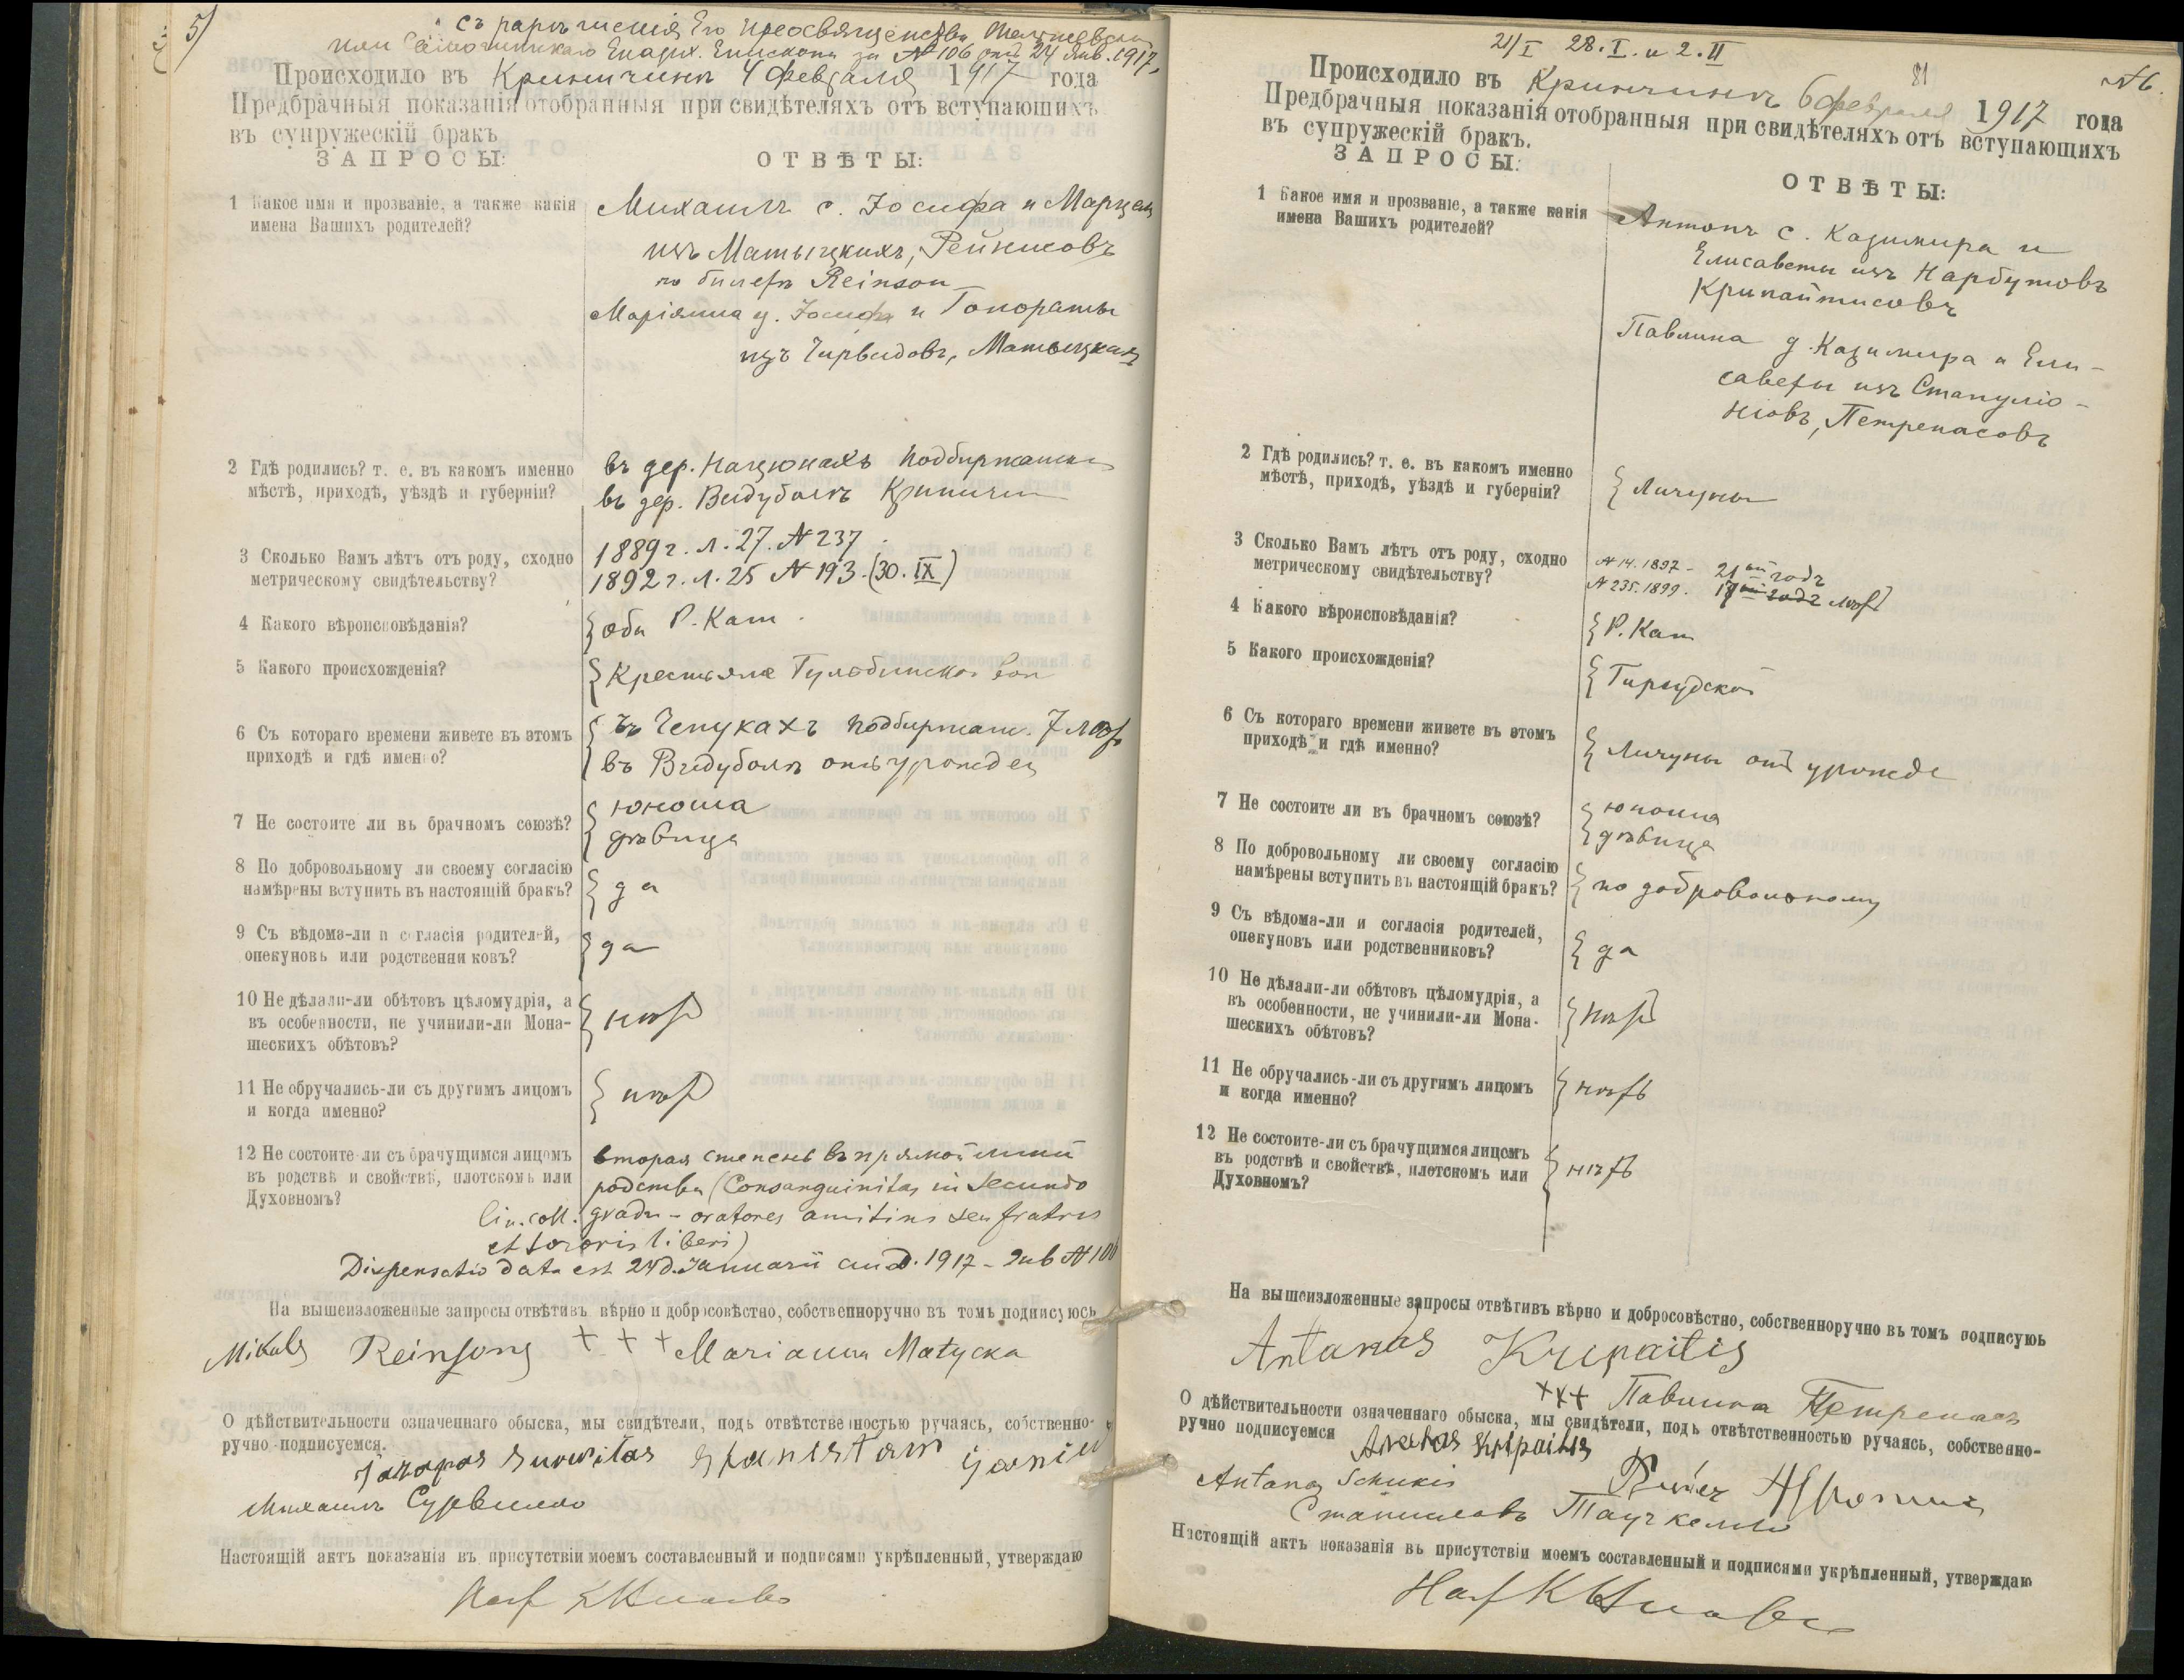 5/
съ разрѣшенія Его Преосвященства Тельшевскаго
или Самогитскаго Епарх. Епископа за № 106 отъ 24 Янв. 1917.
Происходило въ Криничинѣ 4 февраля 1917 года
Предбрачныя показанія отобранныя при свидѣтеляхъ отъ вступающихъ
въ супружескій бракъ
ЗАПРОСЫ:
ОТВѢТЫ:
1 Какое имя и прозваніе, а также какія
имена Вашихъ родителей?
Михаилъ с. Іосифа и Марцел
изъ Матыцкихъ, Рейнисовъ
по билету Reinson
Маріянна д. Іосифа и Гонораты
изъ Чирвидовъ, Матыцкая
2 Гдѣ родились? т. е. въ какомъ именно
мѣстѣ, приходѣ, уѣздѣ и губерніи?
въ дер. Нацюнахъ Поддбиржанск
въ дер. Видуболѣ Криничи
3 Сколько Вамъ лѣтъ отъ роду, сходно
метрическому свидѣтельству?
1889 г. л. 27. № 237.
1892 г. л. 25 № 193. (30. IX)
4 Какого вѣроисповѣданія?
оба Р. Кат.
5 Какого происхожденія?
Крестьяне Гулобинской вол
6 Съ котораго времени живете въ этомъ
приходѣ и гдѣ именно?
Въ Чепукахъ Поддбиржан. 7 лѣтъ
въ Видуболѣ отъ урожден
7 Не состоите ли въ брачномъ союзѣ?
юноша
дѣвица
8 По добровольному ли своему согласію
намѣрены вступить въ настоящій бракъ?
да
9 Съ вѣдома-ли и согласія родителей,
опекуновъ или родственни ковъ?
да
10 Не дѣлали-ли обѣтовъ цѣломудрія, а
въ особенности, не учинили-ли Мона-
шескихъ обѣтовъ?
нѣтъ
11 Не обручались-ли съ другимъ лицомъ
и когда именно?
нѣтъ
12 Не состоите ли съ брачущимся лицомъ
въ родствѣ и свойствѣ, плотскомъ или
Духовномъ?
вторая степень въ прямой линіи
родства (Consanguinitas in secundo
lin. coll. gradu - oratores amitini seu fratris
et sororis liberi)
Dispensatio data est 24 d. Januarii an. D. 1917 - sub № 106
На вышеизложенные запросы отвѣтивъ вѣрно и добросовѣстно, собственноручно въ томъ подписуюсь
Mikals Reinsons + + + Марианна Матуска
О дѣйствительности означеннаго обыска, мы свидѣтели, подъ отвѣтственностью ручаясь, собственно-
ручно подписуемся.
Михаилъ Сурвилло
Настоящій актъ показанія въ присутствіи моемъ составленный и подписями укрѣпленный, утверждаю
21/I 28. I. и 2. II
81
№ 6.
Происходило въ Криничинѣ 6 февраля 1917 года
Предбрачныя показанія отобранныя при свидѣтеляхъ отъ вступающихъ
въ супружескій бракъ.
ЗАПРОСЫ:
ОТВѢТЫ:
1 Какое имя и прозваніе, а также какія
имена Вашихъ родителей?
Антонъ с. Казимира и
Елисаветы изъ Нарбутовъ
Крипайтисовъ
Павлина д. Казимира и Ели-
саветы изъ Стапуліо-
ніовъ, Петренасовъ
2 Гдѣ родились? т. е. въ какомъ именно
мѣстѣ, приходѣ, уѣздѣ и губерніи?
Личуны
3 Сколько Вамъ лѣтъ отъ роду, сходно
метрическому свидѣтельству?
№ 14. 1897 - 21ый годъ
№ 235. 1899. 17 годъ лѣтъ
4 Какого вѣроисповѣданія?
Р. Кат
5 Какого происхожденія?
Гиргудской
6 Съ котораго времени живете въ этомъ
приходѣ и гдѣ именно?
Личуны отъ урожде
7 Не состоите ли въ брачномъ союзѣ?
юноша
дѣвица
8 По добровольному ли своему согласію
намѣрены вступить въ настоящій бракъ?
по добровольному
9 Съ вѣдома-ли и согласія родителей,
опекуновъ или родственниковъ?
да
10 Не дѣлали-ли обѣтовъ цѣломудрія, а
въ особенности, не учинили-ли Мона-
шескихъ обѣтовъ?
нѣтъ
11 Не обручались-ли съ другимъ лицомъ
и когда именно?
нѣтъ
12 Не состоите-ли съ брачущимся лицомъ
въ родствѣ и свойствѣ, плотскомъ или
Духовномъ?
нѣтъ
На вышеизложенные запросы отвѣтивъ вѣрно и добросовѣстно, собственноручно въ томъ подписуюь
Antanas Kripaitis
+++ Павлина Петренас
О дѣйствительности означеннаго обыска, мы свидѣтели, подъ отвѣтственностью ручаясь, собственно-
ручно подписуемся
Antanas Schukis
Станиславъ Таучкелло
Настоящій актъ показанія въ присутствіи моемъ составленный и подписями укрѣпленный, утверждаю